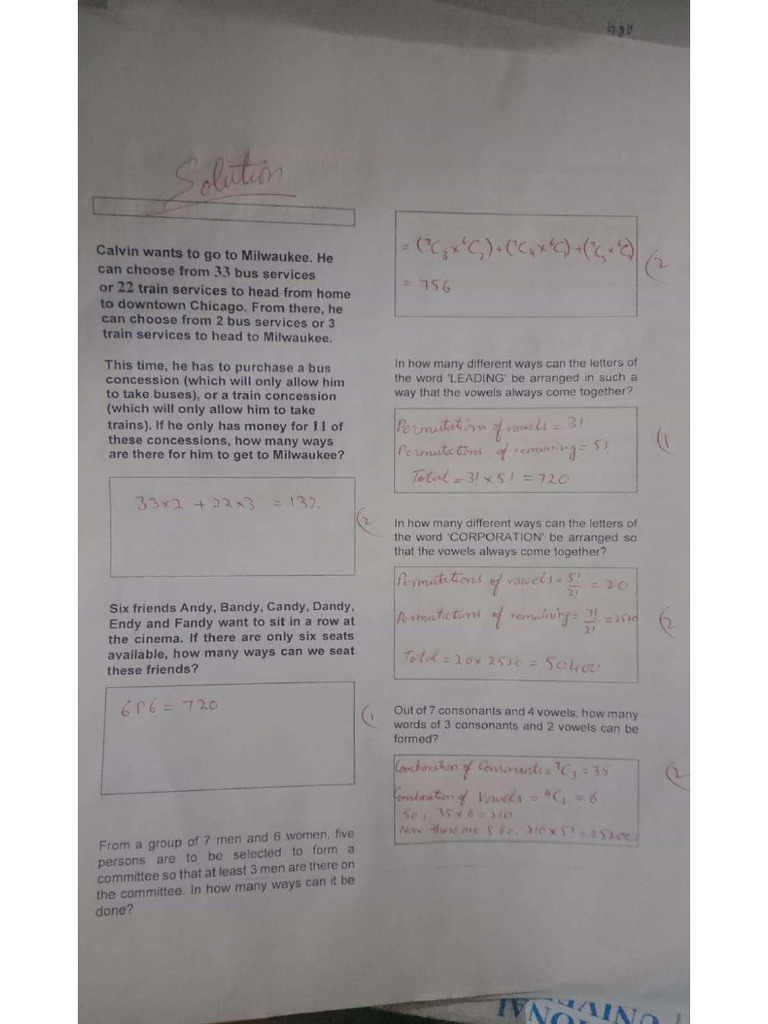 Solution
Calvin wants to go to Milwaukee. He
can choose from 33 bus services
or 22 train services to head from home
to downtown Chicago. From there, he
can choose from 2 bus services or 3
train services to head to Milwaukee.
This time, he has to purchase a bus
concession (which will only allow him
to take buses), or a train concession
(which will only allow him to take
trains). If he only has money for 11 of
these concessions, how many ways
are there for him to get to Milwaukee?
33x2 + 22x3 = 132
(2
Six friends Andy, Bandy, Candy, Dandy,
Endy and Fandy want to sit in a row at
the cinema. If there are only six seats
available, how many ways can we seat
these friends?
6P6 = 720
(1
From a group of 7 men and 6 women, five
persons are to be selected to form a
committee so that at least 3 men are there on
the committee. In how many ways can it be
done?
= (⁷C₃ x ⁶C₂) + (⁷C₄ x ⁶C₁) + (⁷C₅ x ⁶C₀)
= 756
(2
In how many different ways can the letters of
the word 'LEADING' be arranged in such a
way that the vowels always come together?
Permutation of vowels = 3!
Permutations of remaining = 5!
Total = 3! x 5! = 720
(1
In how many different ways can the letters of
the word 'CORPORATION' be arranged so
that the vowels always come together?
Permutations of vowels = 5!/3! = 20
Permutations of remaining = 7!/2! = 2520
Total = 20 x 2520 = 50400
(2
Out of 7 consonants and 4 vowels, how many
words of 3 consonants and 2 vowels can be
formed?
Combination of Consonants = ⁷C₃ = 35
Combination of Vowels = ⁴C₂ = 6
So, 35 x 6 = 210
Now these are 5 so, 210 x 5! = 25200
(2